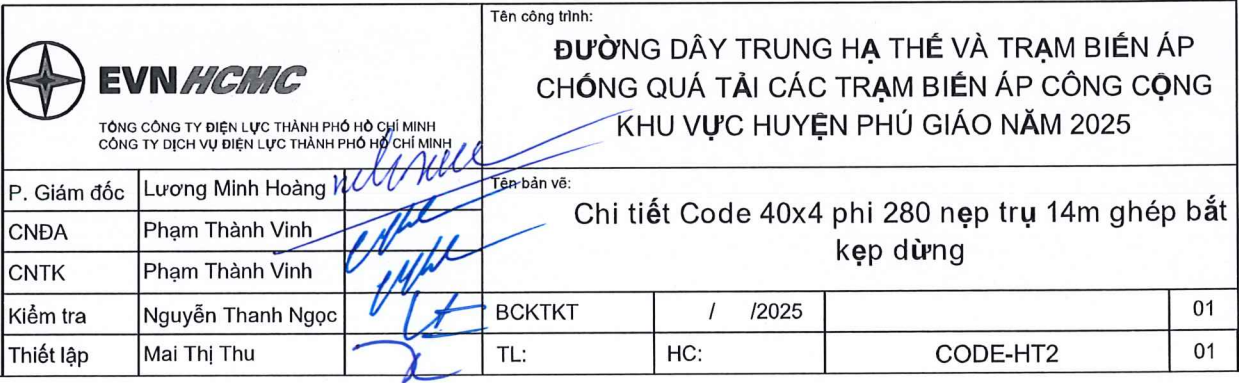 EVNHCMC
TỔNG CÔNG TY ĐIỆN LỰC THÀNH PHỐ HỒ CHÍ MINH
CÔNG TY DỊCH VỤ ĐIỆN LỰC THÀNH PHỐ HỒ CHÍ MINH
Tên công trình:
ĐƯỜNG DÂY TRUNG HẠ THẾ VÀ TRẠM BIẾN ÁP
CHỐNG QUÁ TẢI CÁC TRẠM BIẾN ÁP CÔNG CỘNG
KHU VỰC HUYỆN PHÚ GIÁO NĂM 2025
P. Giám đốc Lương Minh Hoàng
CNĐA Phạm Thành Vinh
CNTK Phạm Thành Vinh
Kiểm tra Nguyễn Thanh Ngọc
Thiết lập Mai Thị Thu
Tên bản vẽ:
Chi tiết Code 40x4 phi 280 nẹp trụ 14m ghép bắt
kẹp dừng
BCKTKT / /2025 01
TL: HC: CODE-HT2 01